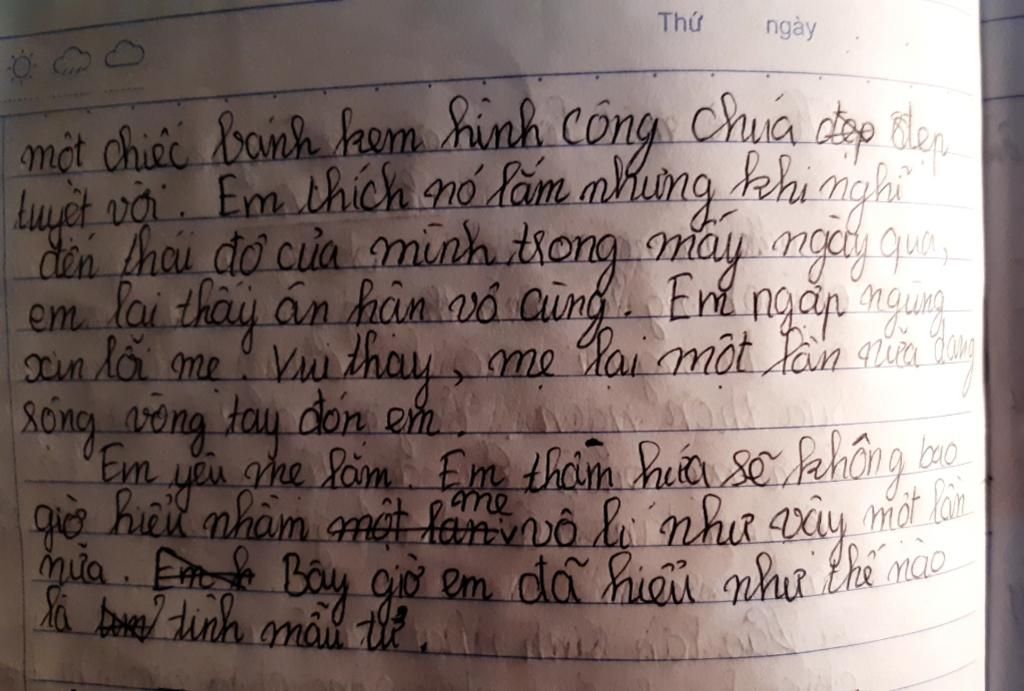 Thứ ngày
một chiếc bánh kem hình công chúa đẹp đẹp
tuyệt vời. Em thích nó lắm nhưng khi nghĩ
đến thái độ của mình trong mấy ngày qua,
em lại thấy ân hận vô cùng. Em ngập ngừng
xin lỗi mẹ. Vui thay, mẹ lại một lần nữa dang
sóng vòng tay đón em.
Em yêu mẹ lắm. Em thầm hứa sẽ không bao
giờ hiểu nhầm một lần mẹ vô lí như vậy một lần
nữa. Em h Bây giờ em đã hiểu như thế nào
là tình mẫu tử.